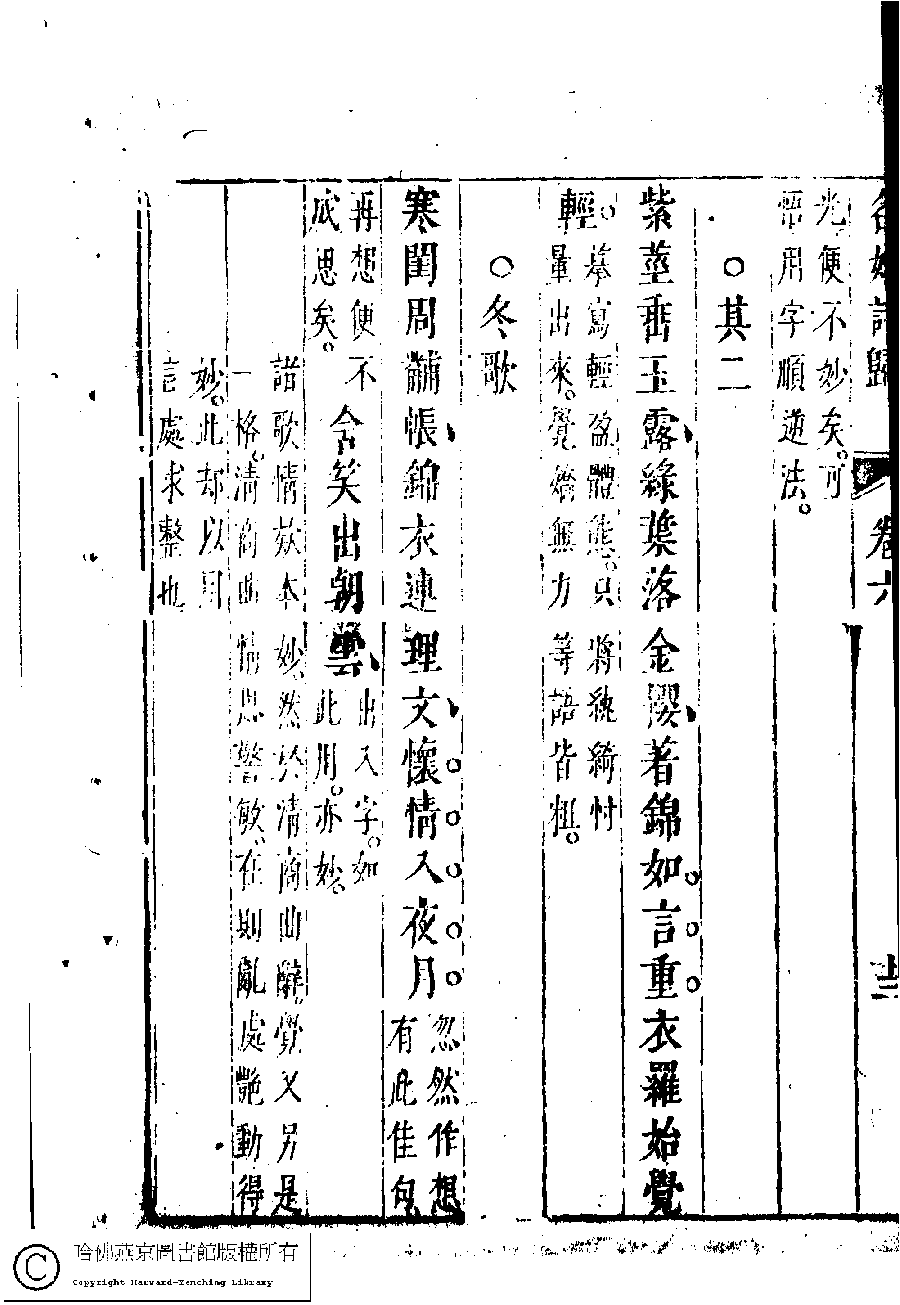 名媛詩歸 卷六 十三
光便不妙矣。可
悟用字順逆法。
○其二
紫莖垂玉露、綠葉落金櫻、著錦如言重衣羅始覺
輕。
摹寫輕盈體態。只將紈綺忖
量出來。覺嬌無力等語皆粗。
○冬歌
寒閨周黼帳、錦衣連理文、懷情入夜月。
忽然作想
有此佳句
再想便不
成思矣。
含笑出朝雲、
出入字。如
此用。亦妙。
諸歌情款本妙、然於清商曲辭。覺又另是
一格。清商曲情思警敏、在則亂處艷動得
妙。此却以周
言處求整也
哈佛燕京圖書館版權所有
Copyright Harvard-Yenching Library